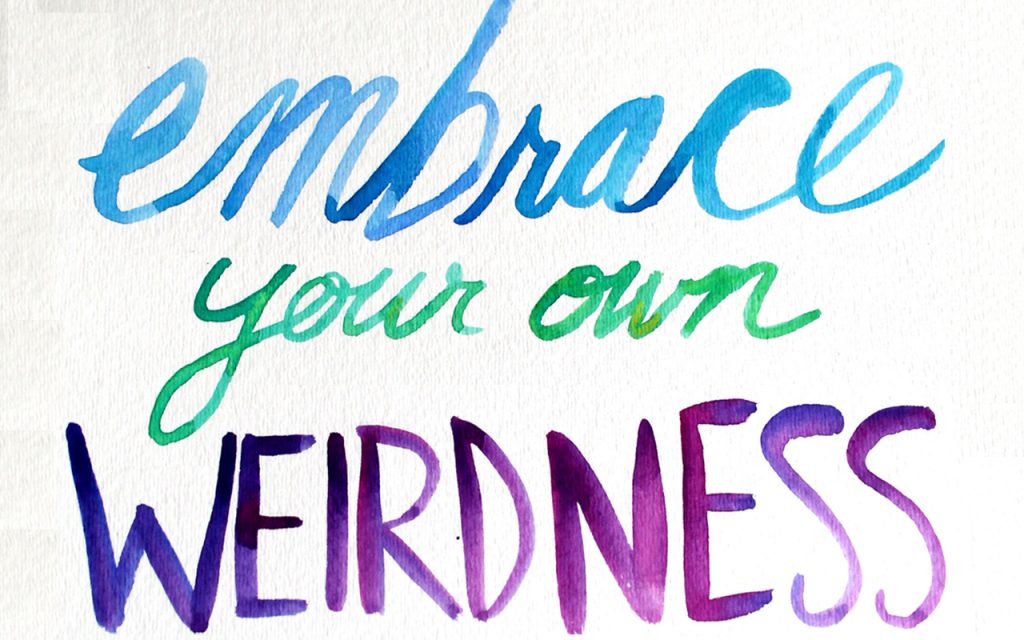 embrace
your own
WEIRDNESS